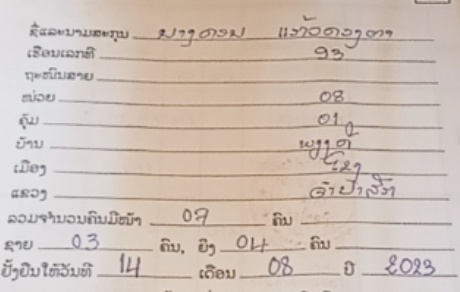 ຊື່ແລະນາມສະກຸນ ນາງ ດວນ ແກ້ວດວງຕາ
ເຮືອນເລກທີ 93
ຖະໜົນສາຍ
ໜ່ວຍ 08
ຄຸ້ມ 01
ບ້ານ
ເມືອງ ໂຂງ
ແຂວງ ຈຳປາສັກ
ລວມຈຳນວນຄົນມີໜ້າ 07 ຄົນ
ຊາຍ 03 ຄົນ, ຍິງ 04 ຄົນ
ຢັ້ງຢືນໃຫ້ວັນທີ 14 ເດືອນ 08 ປີ 2023